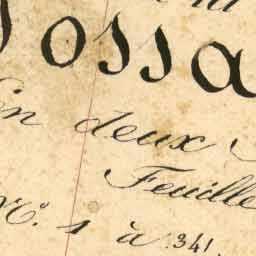 ossa
En deux
Feuille
N.º 1 à 341.